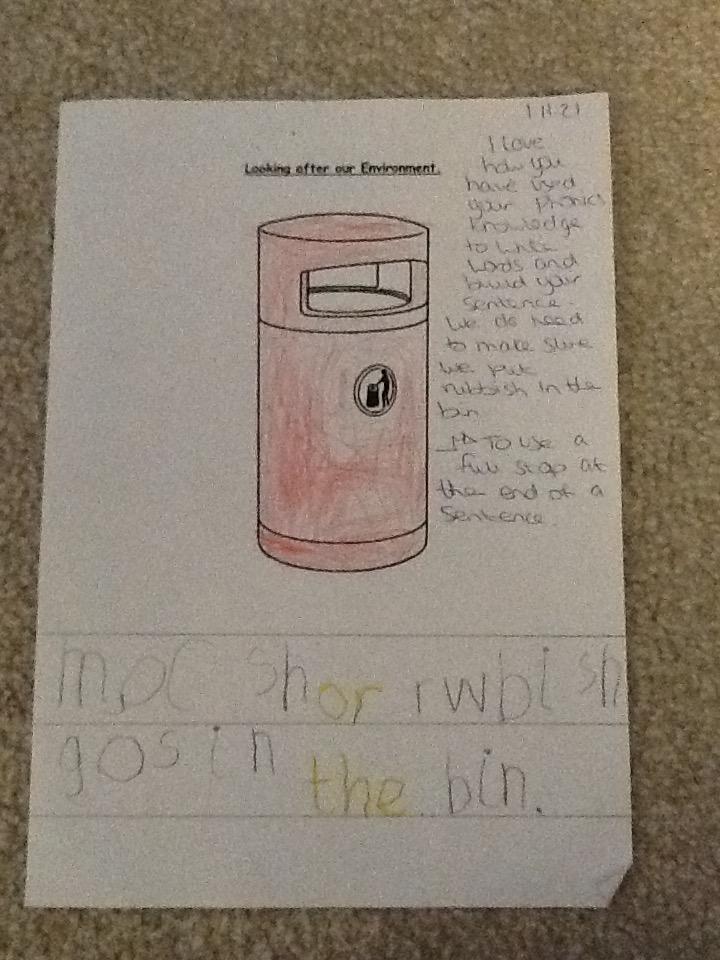 1.11.21
Looking after our Environment.
I love
how you
have used
your phonics
knowledge
to write
words and
build your
sentence.
We do need
to make sure
we put
rubbish in the
bin
To use a
full stop at
the end of a
sentence.
mac shor rwbish
gos in the bin.